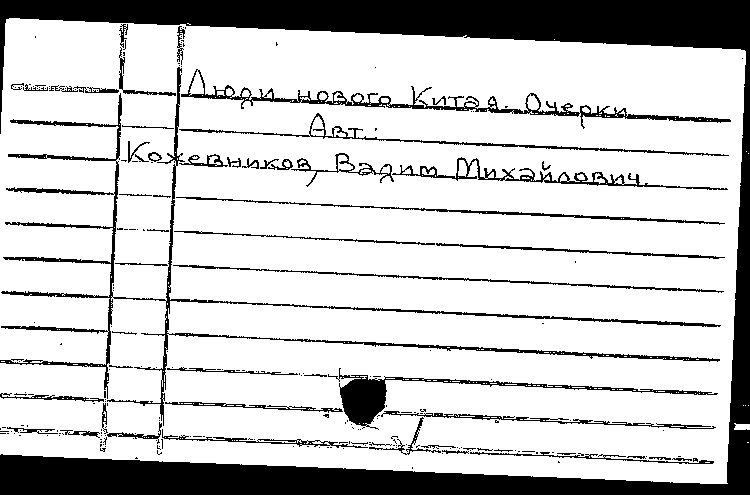 Люди нового Китая. Очерки
Авт.:
Кожевников, Вадим Михайлович.